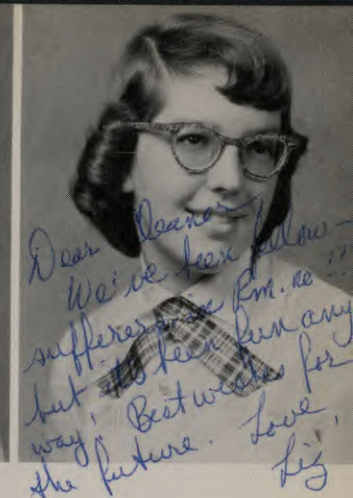 Dear Eleanor
We've been fellow-
sufferers in Rm. ne !!
but it's been fun any
way! Best wishes for
the future. Love,
Liz